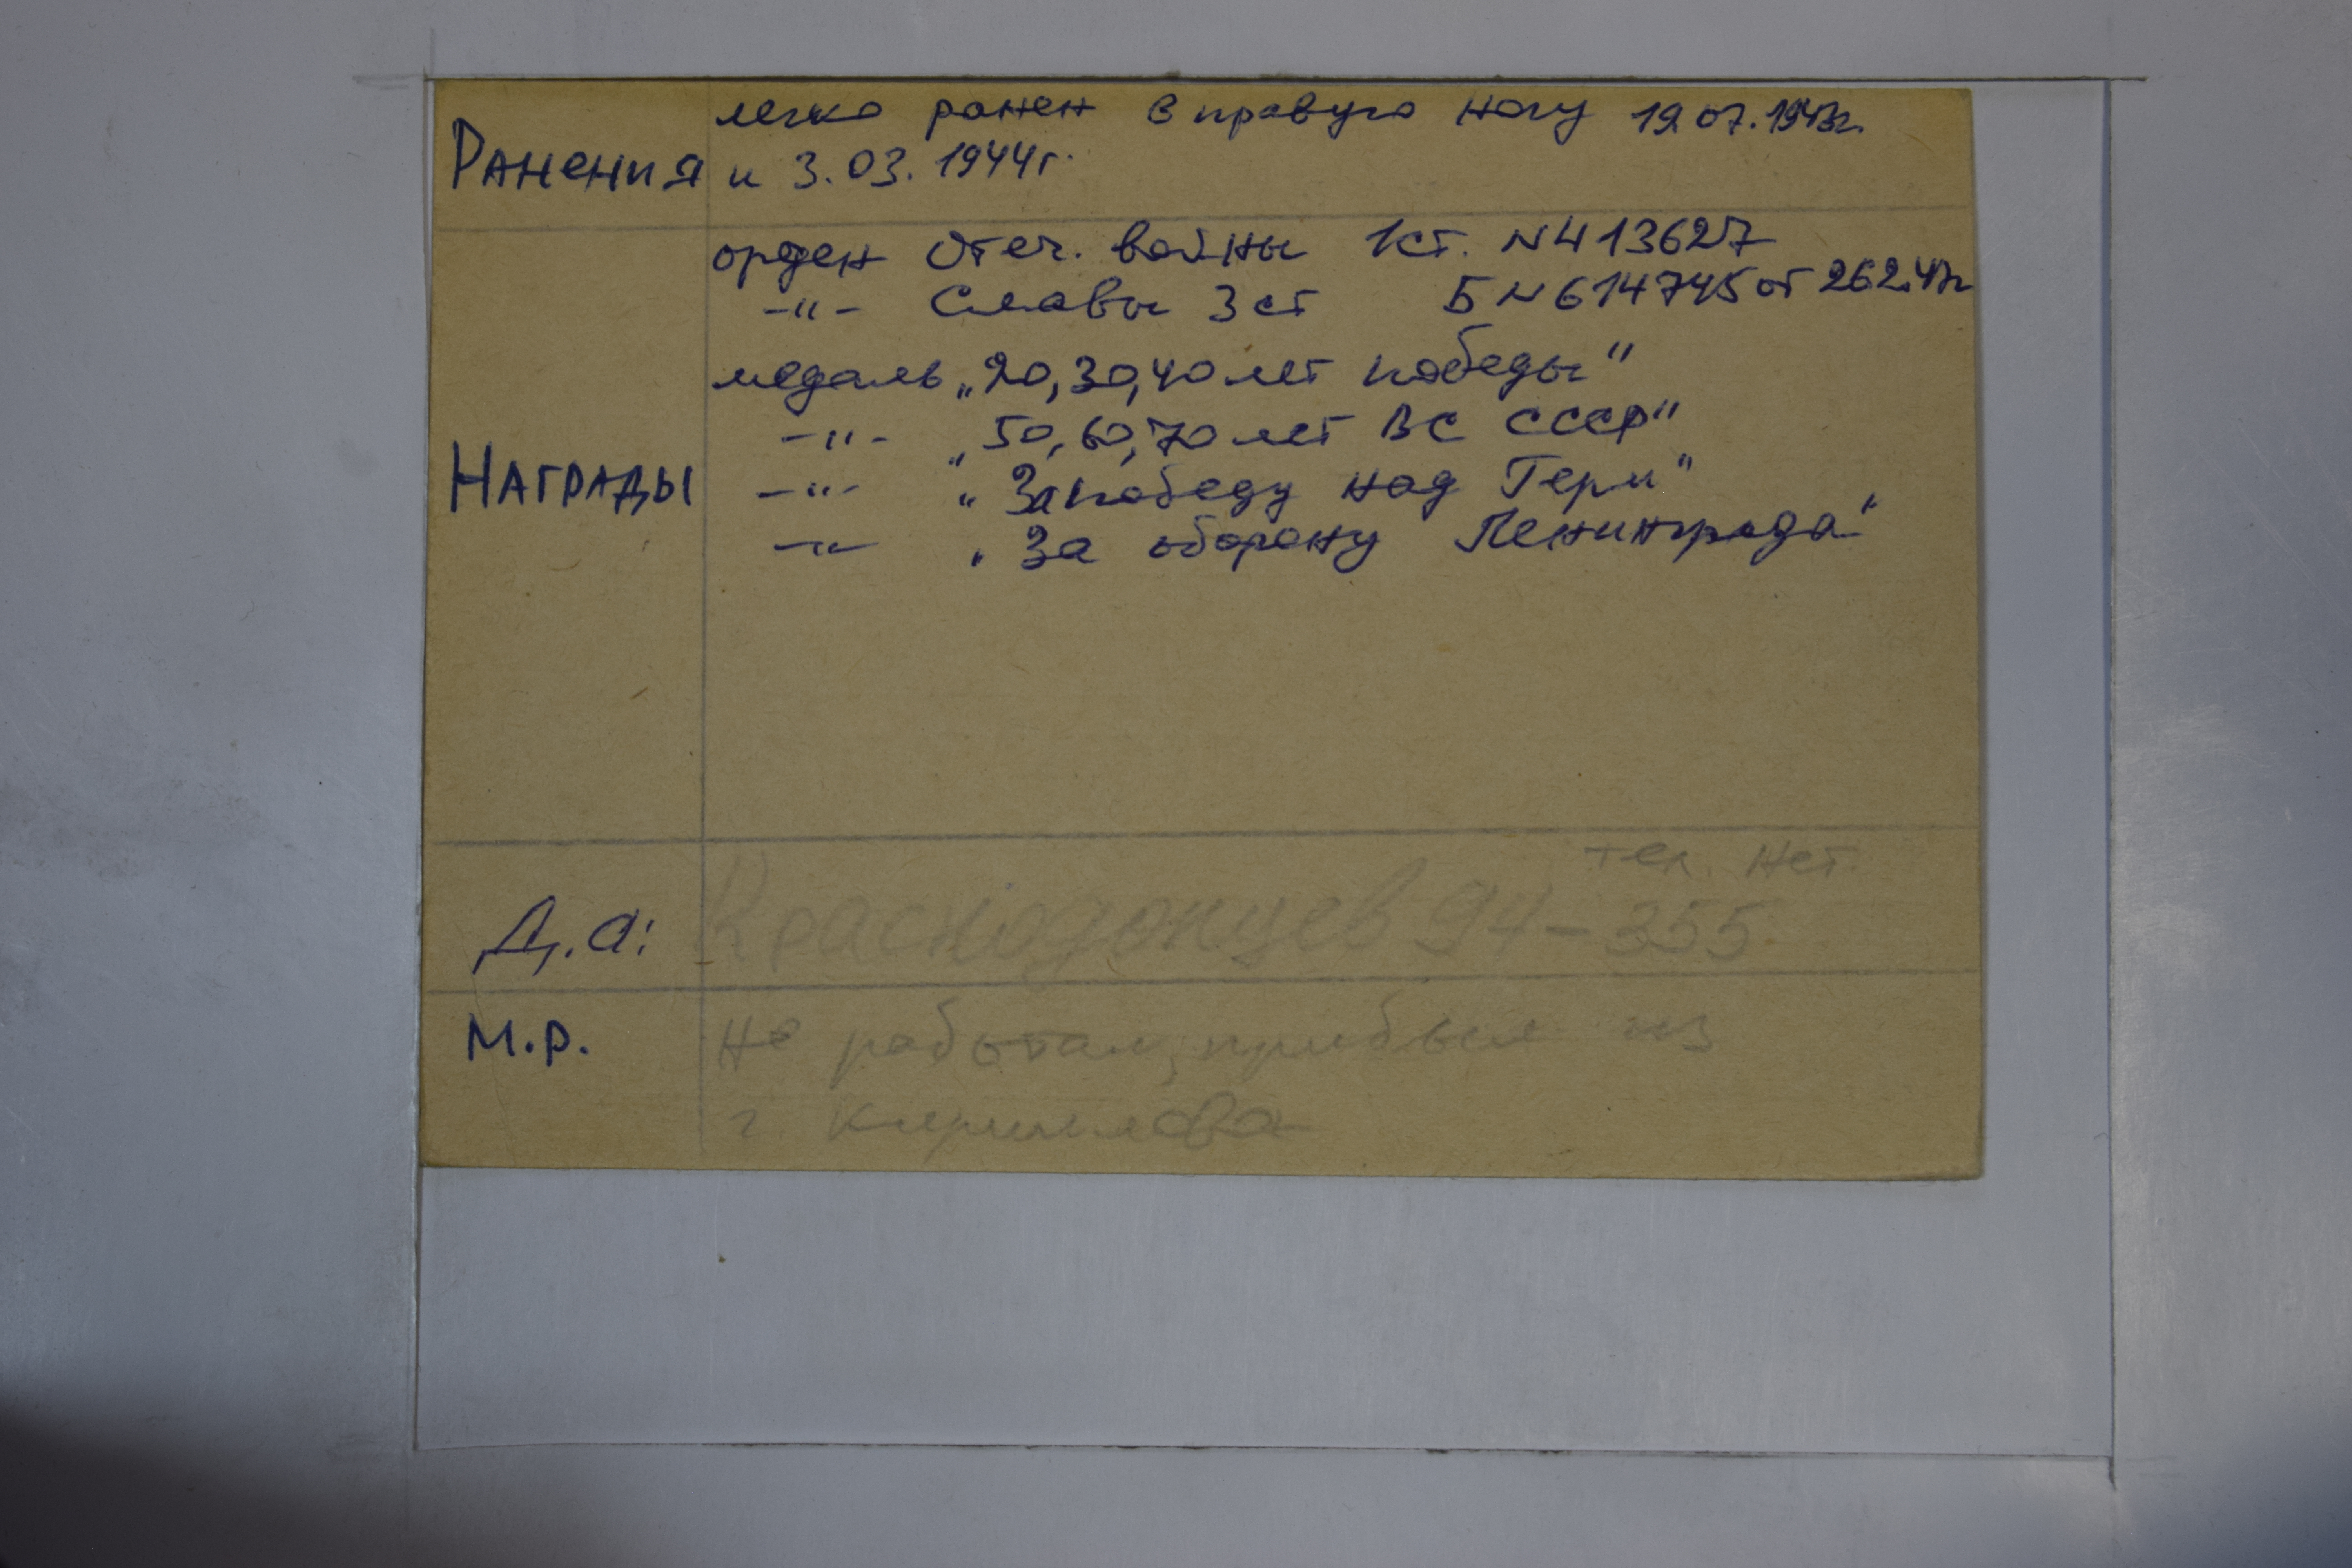 Ранения легко ранен в правую ногу 19.07.1943г.
и 3.03.1944г.
Награды
орден Отеч. войны 1 ст. N413627
-"- Славы 3 ст Б N 614745 от 26.2.47г
медаль „20,30,40 лет победы"
-"- „50,60,70 лет ВС СССР"
-"- „За победу над Герм"
-"- „За оборону Ленинграда"
тел. нет.
Д.а: Краснодонцев 94-355
М.Р. не работал, прибыл из
г. Кириллова